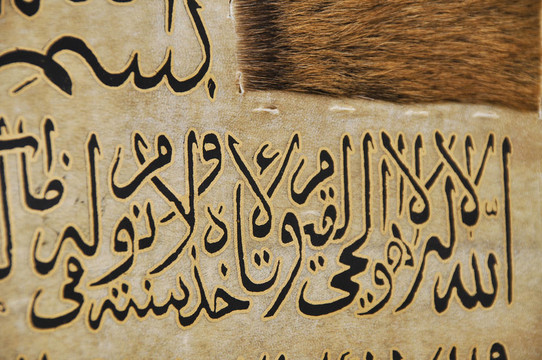 بسم
الله لا اله الا هو الحي القيوم لا تاخذه سنة ولا نوم له ما في